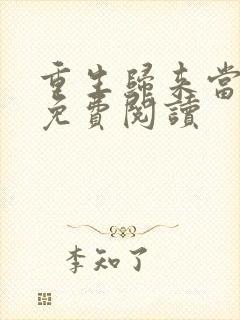 重生歸來當
免費閱讀
李知了